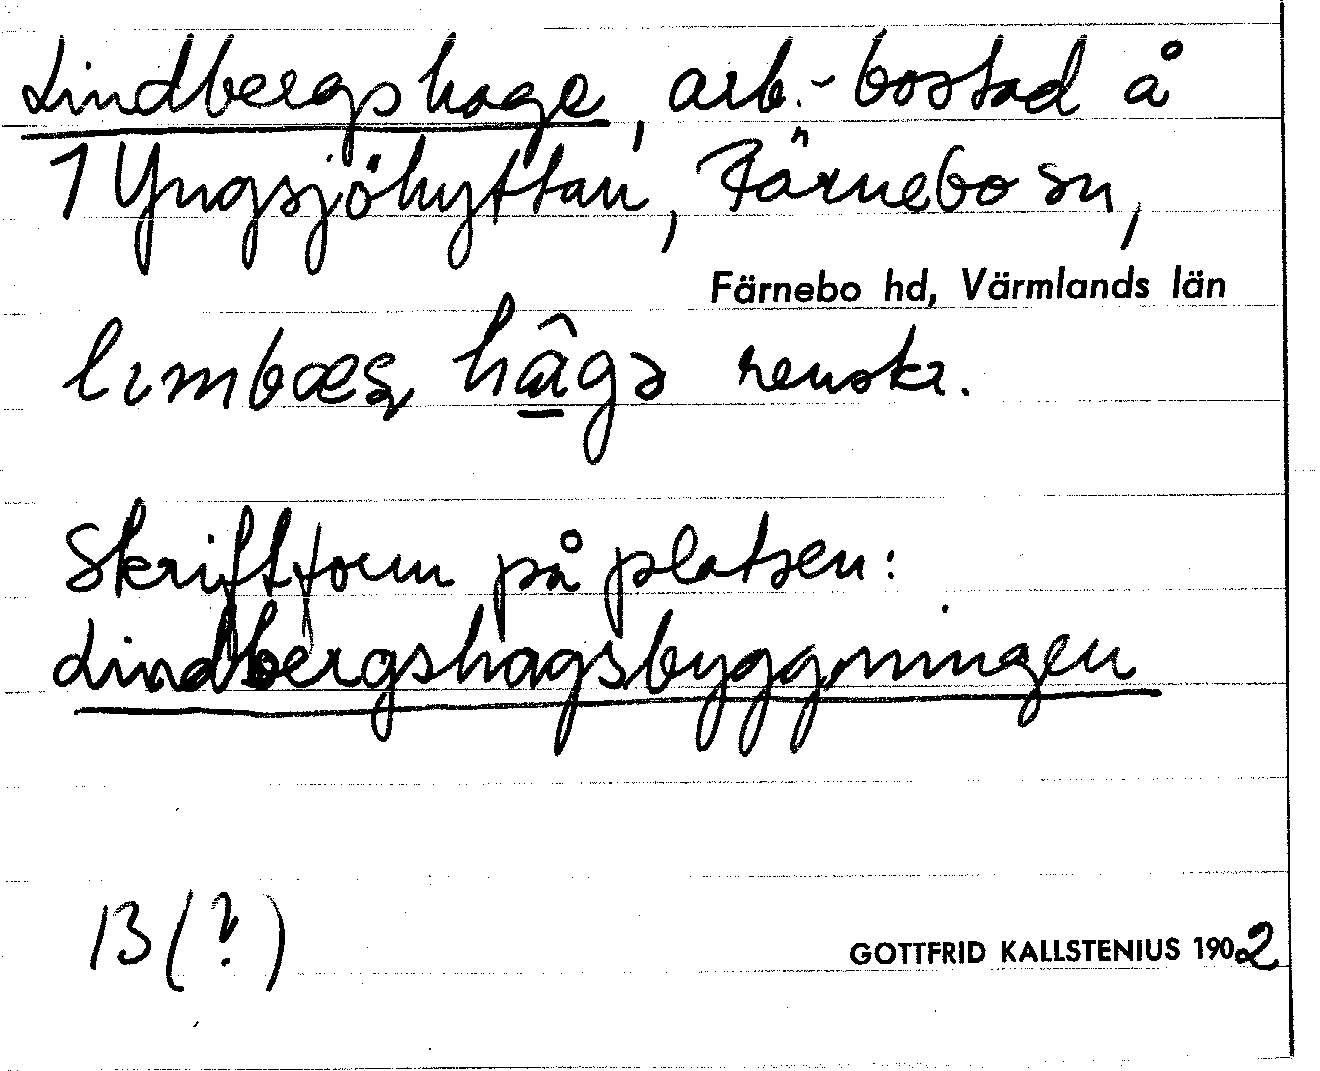 Lindbergshage, arb.-bostad å
1 Yngsjöhyttan, Färnebo sn,
Färnebo hd, Värmlands län
renskr.
Skriftform på platsen:
Lindbergshagsbyggningen
13 (?)
GOTTFRID KALLSTENIUS 1902